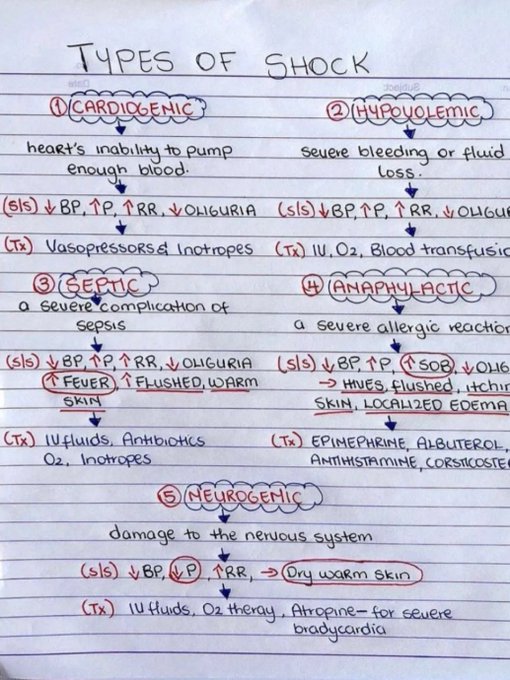 TYPES OF SHOCK
① CARDIOGENIC
heart's inability to pump
enough blood.
(S/S) ↓BP, ↑P, ↑RR, ↓OLIGURIA
(Tx) Vasopressors & Inotropes
② HYPOVOLEMIC
severe bleeding or fluid
loss.
(S/S) ↓BP, ↑P, ↑RR, ↓OLIGUR
(Tx) IV, O2, Blood transfusio
③ SEPTIC
a severe complication of
sepsis
(S/S) ↓BP, ↑P, ↑RR, ↓OLIGURIA
↑FEVER, ↑FLUSHED, WARM
SKIN
(Tx) IV fluids, Antibiotics
O2, Inotropes
④ ANAPHYLACTIC
a severe allergic reaction
(S/S) ↓BP, ↑P, ↑SOB, ↓OLIG
→ HIVES, flushed, itchin
SKIN, LOCALIZED EDEMA
(Tx) EPINEPHRINE, ALBUTEROL,
ANTIHISTAMINE, CORSTICOSTE
⑤ NEUROGENIC
damage to the nervous system
(S/S) ↓BP, ↓P, ↑RR, → Dry warm skin
(Tx) IV fluids, O2 theray, Atropine – for severe
bradycardia